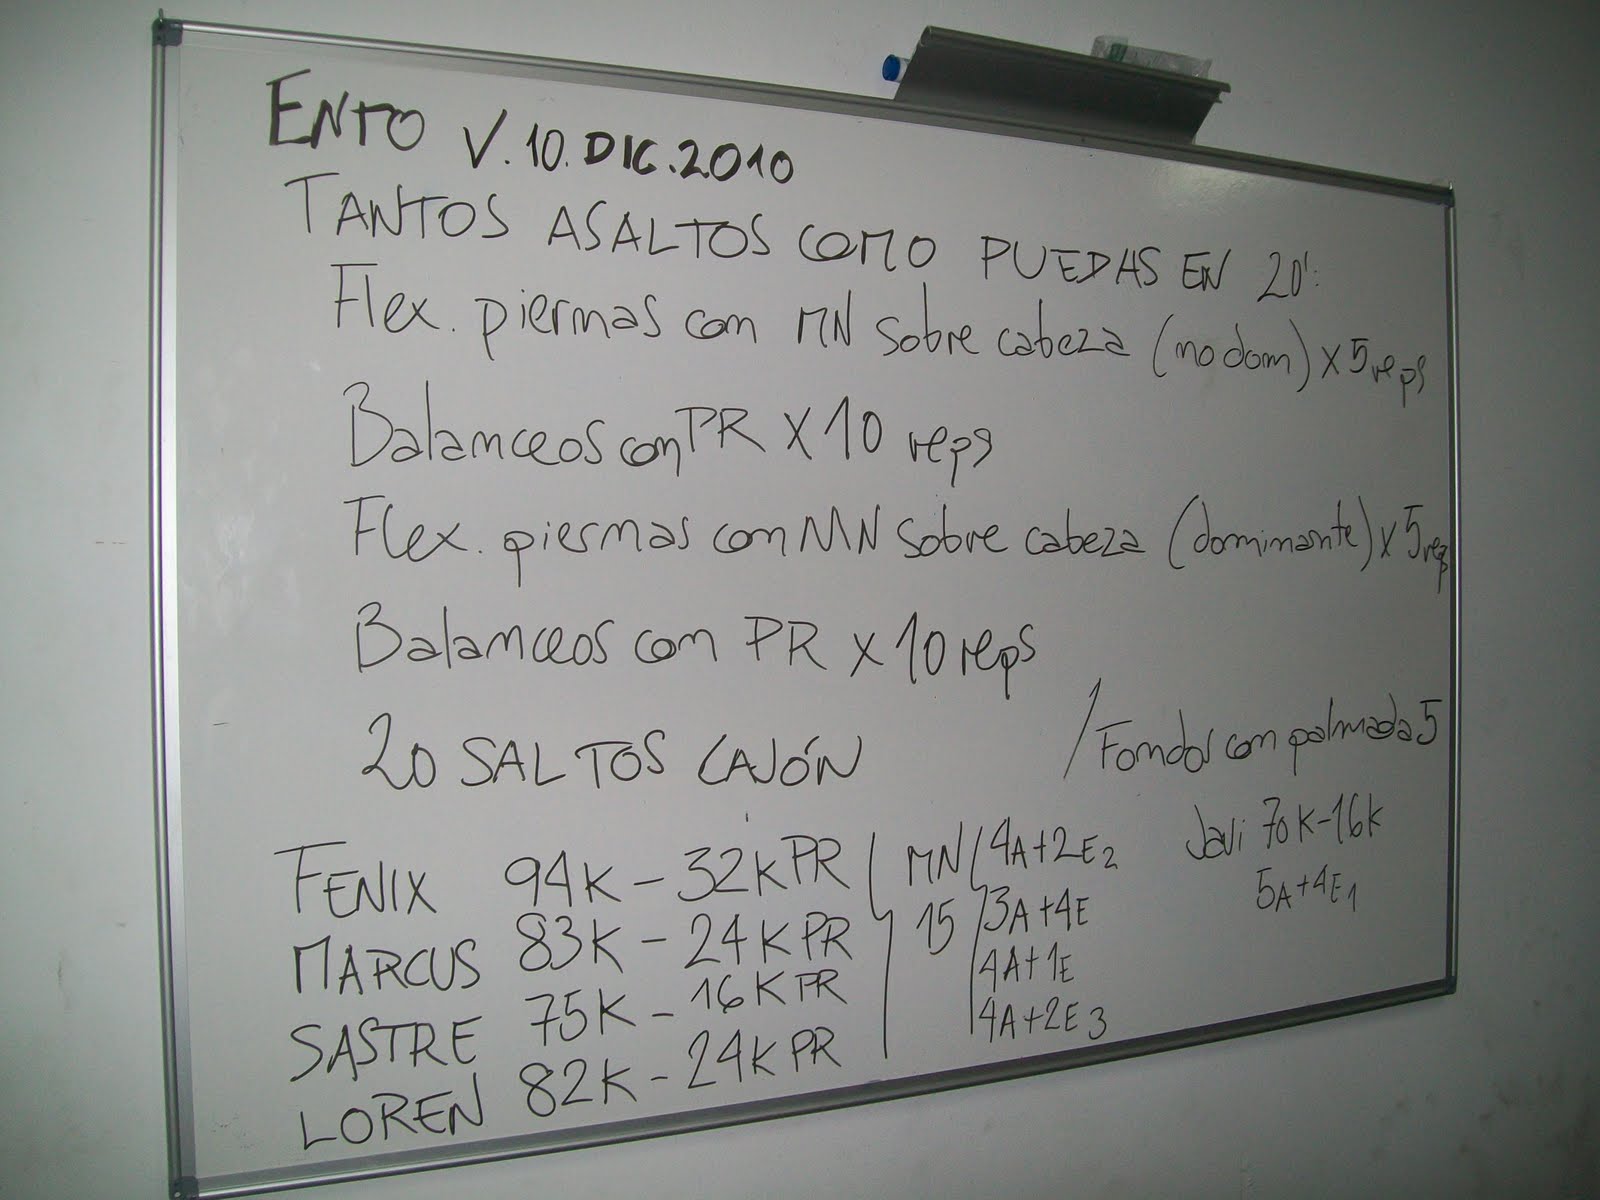 ENTO V.10.DIC.2010
TANTOS ASALTOS COMO PUEDAS EN 20':
Flex. piernas con MN sobre cabeza (no dom) x 5 reps
Balanceos con PR x 10 reps
Flex. piernas con MN sobre cabeza (dominante) x 5 reps
Balanceos con PR x 10 reps
20 SALTOS CAJÓN / Fondos con palmada 5
FENIX 94K - 32K PR / MN / 4A+2E2
MARCUS 83K - 24K PR 15 3A+4E
SASTRE 75K - 16K PR 4A+1E
LOREN 82K - 24K PR 4A+2E3
Javi 70K-16K
5A+4E1